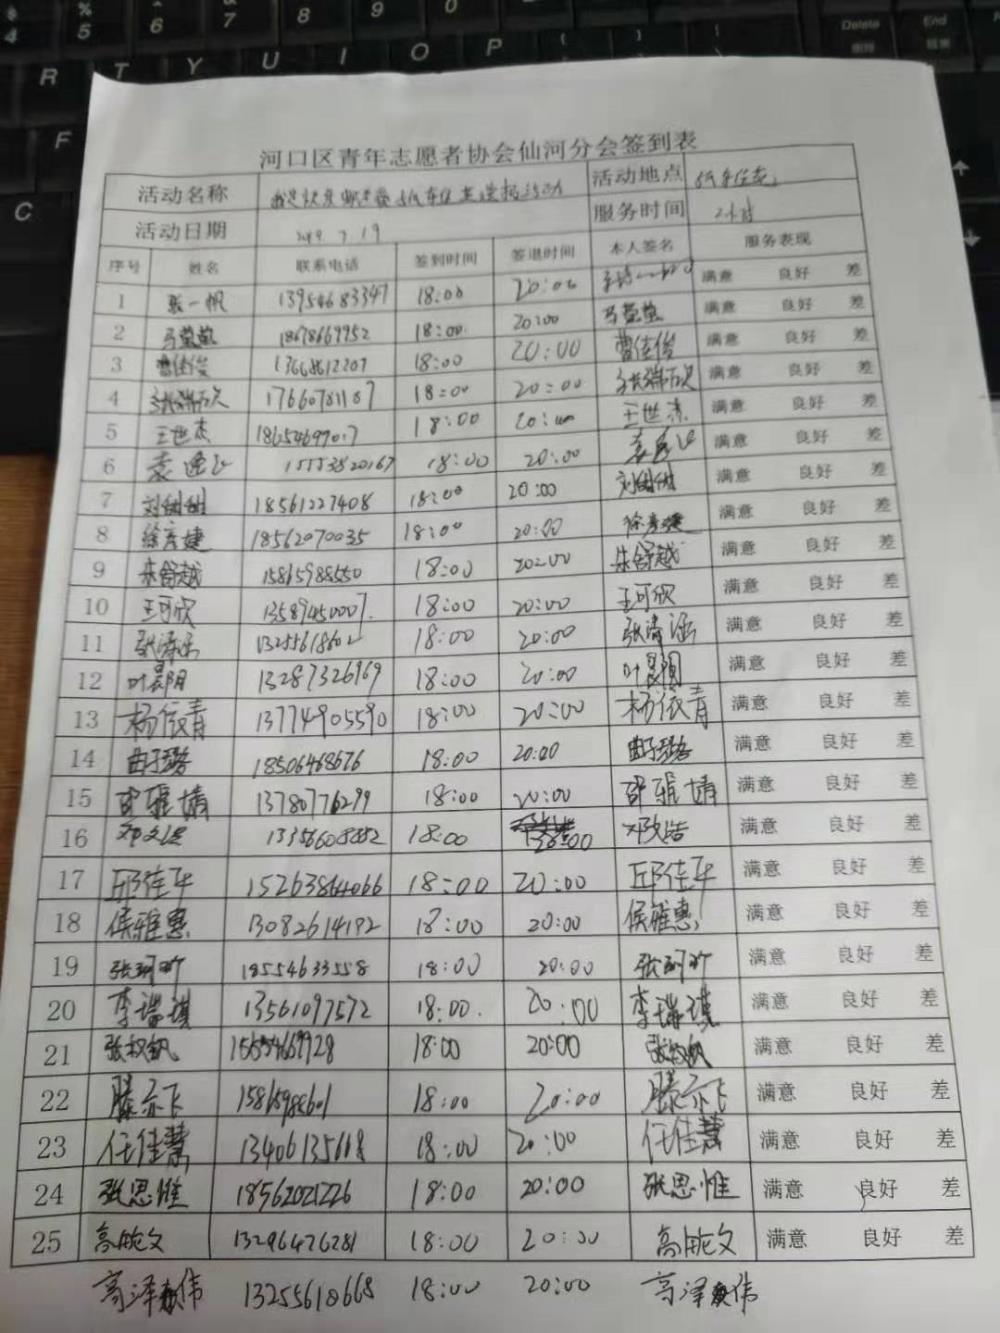 $ 4 % 5 6 7 8 9 0 Delete 删除 End 结束
R T Y U I O P
F
C
河口区青年志愿者协会仙河分会签到表
活动名称 活动地点
活动日期 2019.7.19 服务时间 2小时
序号 姓名 联系电话 签到时间 签退时间 本人签名 服务表现
1 张一帆 13954683347 18:00 20:00 满意 良好 差
2 马莹莹 18678669952 18:00 20:00 马莹莹 满意 良好 差
3 曹佳俊 13668612207 18:00 20:00 曹佳俊 满意 良好 差
4 17660781187 18:00 20:00 满意 良好 差
5 王世杰 18:00 20:00 王世杰 满意 良好 差
6 15553820167 18:00 20:00 满意 良好 差
7 18561227408 18:00 20:00 满意 良好 差
8 徐彦婕 18562070035 18:00 20:00 徐彦婕 满意 良好 差
9 朱舒越 15865988550 18:00 20:00 朱舒越 满意 良好 差
10 王可欣 13589450007 18:00 20:00 王可欣 满意 良好 差
11 张涛涵 13255618602 18:00 20:00 张涛涵 满意 良好 差
12 叶晨阳 13287326969 18:00 20:00 叶晨阳 满意 良好 差
13 杨依青 13774905590 18:00 20:00 杨依青 满意 良好 差
14 曲子璐 18506468676 18:00 20:00 曲子璐 满意 良好 差
15 邵雅婧 13780776299 18:00 20:00 邵雅婧 满意 良好 差
16 13356608852 18:00 20:00 满意 良好 差
17 邱佳华 15263864066 18:00 20:00 邱佳华 满意 良好 差
18 侯雅惠 13082614192 18:00 20:00 侯雅惠 满意 良好 差
19 18554633558 18:00 20:00 满意 良好 差
20 李瑞琪 13561097572 18:00 20:00 李瑞琪 满意 良好 差
21 18:00 20:00 满意 良好 差
22 滕亦飞 15865988601 18:00 20:00 滕亦飞 满意 良好 差
23 任佳慧 13406135668 18:00 20:00 任佳慧 满意 良好 差
24 张思惟 18562021226 18:00 20:00 张思惟 满意 良好 差
25 高艄文 13296476281 18:00 20:00 高艄文 满意 良好 差
高泽伟 13255618668 18:00 20:00 高泽伟